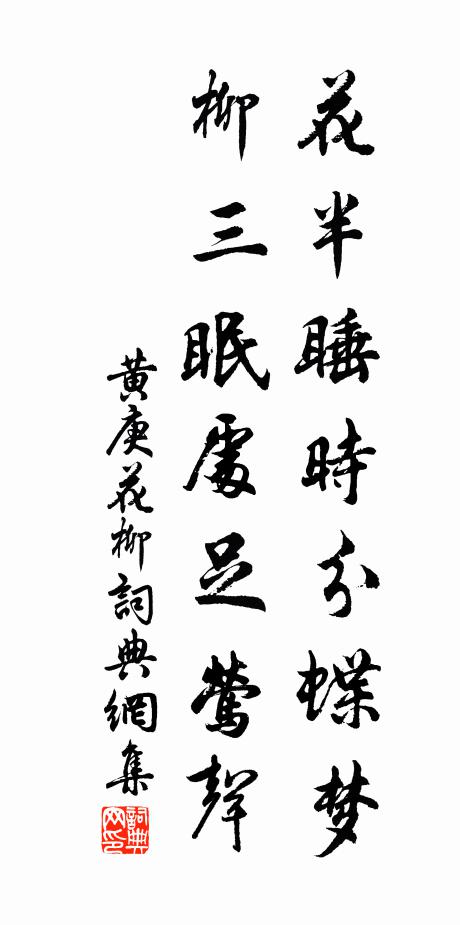 花半睡時分蝶梦
柳三眠處足鶯聲
黄庚花柳詞典網集
詞典网印